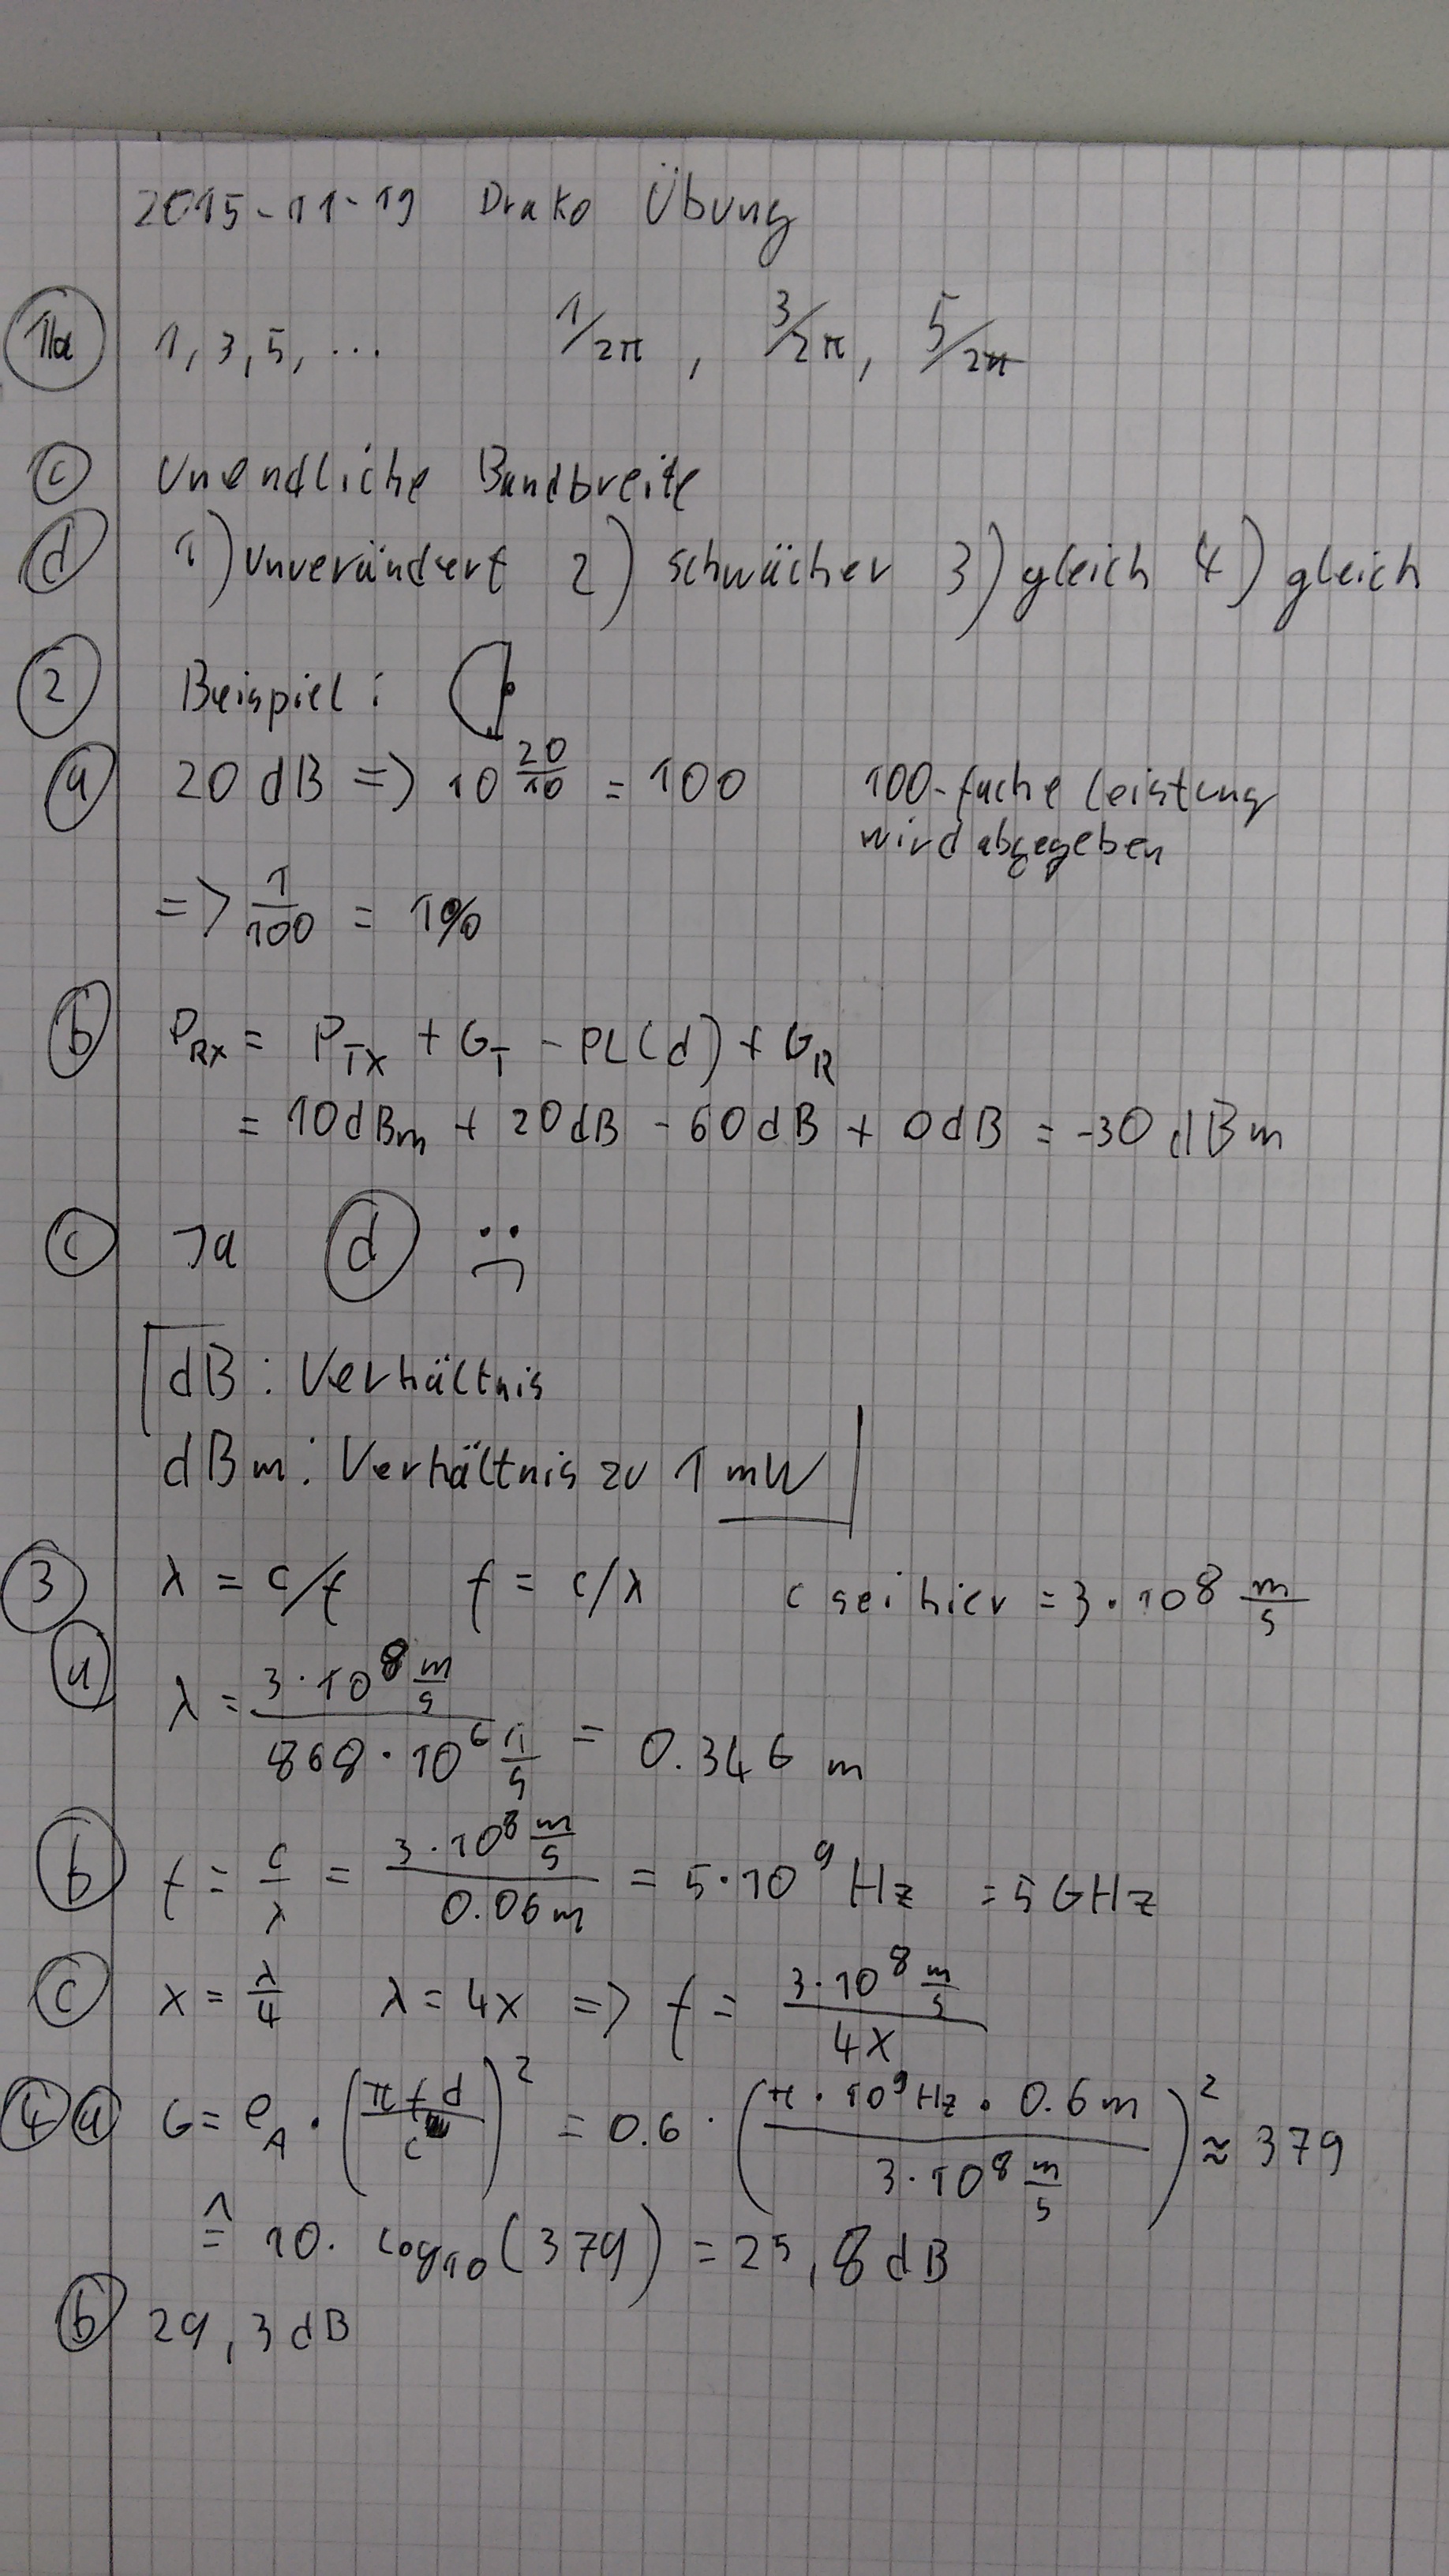 2015-11-19 Drako Übung
1a 1, 3, 5, ... 1/2π, 3/2π, 5/2π
c Unendliche Bandbreite
d 1) unverändert 2) schwächer 3) gleich 4) gleich
2 Beispiel:
a 20 dB => 10^(20/10) = 100 100-fache Leistung
wird abgegeben
=> 1/100 = 1%
b P_RX = P_TX + G_T - PL(d) + G_R
= 10 dBm + 20 dB - 60 dB + 0 dB = -30 dBm
c Ja d :(
dB: Verhältnis
dBm: Verhältnis zu 1 mW
3 λ = c/f f = c/λ c sei hier = 3·10^8 m/s
a λ = (3·10^8 m/s)/(868·10^6 1/s) = 0.346 m
b f = c/λ = (3·10^8 m/s)/(0.06 m) = 5·10^9 Hz = 5 GHz
c x = λ/4 λ = 4x => f = (3·10^8 m/s)/(4x)
4 a G = e_A · (π f d / c)^2 = 0.6 · (π · 10^9 Hz · 0.6 m / 3·10^8 m/s)^2 ≈ 379
≙ 10 · log_10(379) = 25,8 dB
b 29,3 dB